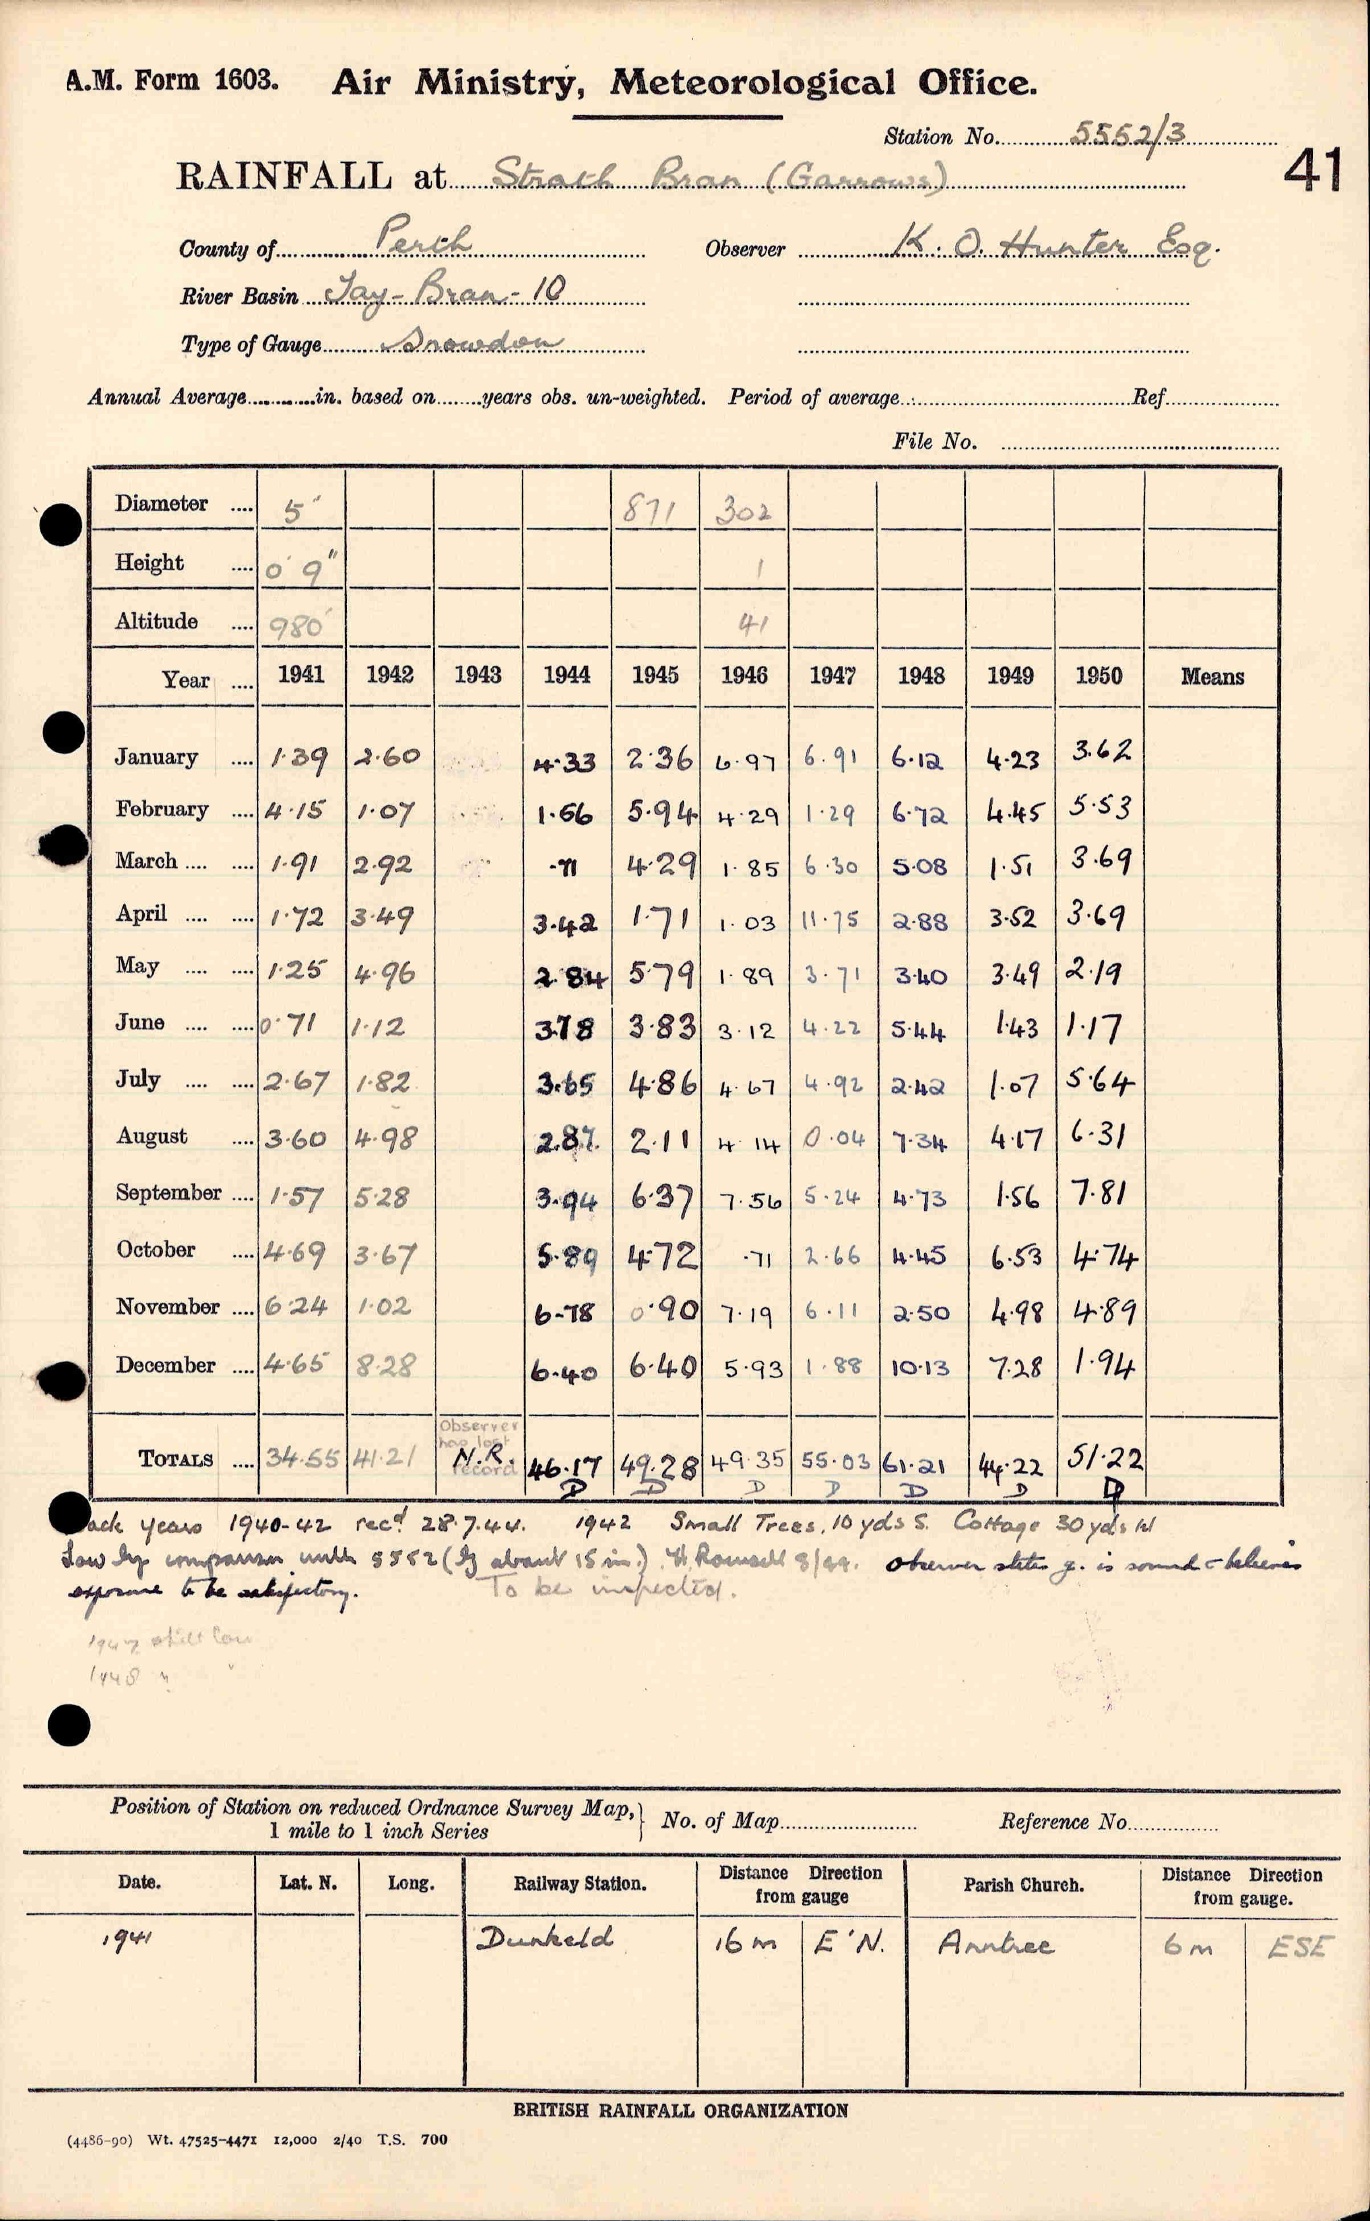 A.M. Form 1603. Air Ministry, Meteorological Office.
Station No. 5552/3
41
RAINFALL at Strath Bran (Garrows)
County of Perth Observer K. O. Hunter Esq.
River Basin Tay - Bran - 10
Type of Gauge Snowdon
Annual Average in. based on years obs. un-weighted. Period of average Ref
File No.
Diameter 5" 871 302
Height 0' 9" 1
Altitude 980' 41
Year 1941 1942 1943 1944 1945 1946 1947 1948 1949 1950 Means
January 1.39 2.60 4.33 2.36 6.97 6.91 6.12 4.23 3.62
February 4.15 1.07 1.66 5.94 4.29 1.29 6.72 4.45 5.53
March 1.91 2.92 .71 4.29 1.85 6.30 5.08 1.51 3.69
April 1.72 3.49 3.42 1.71 1.03 11.75 2.88 3.52 3.69
May 1.25 4.96 2.84 5.79 1.89 3.71 3.40 3.49 2.19
June 0.71 1.12 3.78 3.83 3.12 4.22 5.44 1.43 1.17
July 2.67 1.82 3.65 4.86 4.67 4.92 2.42 1.07 5.64
August 3.60 4.98 2.87 2.11 4.14 0.04 7.34 4.17 6.31
September 1.57 5.28 3.94 6.37 7.56 5.24 4.73 1.56 7.81
October 4.69 3.67 5.89 4.72 .71 2.66 4.45 6.53 4.74
November 6.24 1.02 6.78 0.90 7.19 6.11 2.50 4.98 4.89
December 4.65 8.28 6.40 6.40 5.93 1.88 10.13 7.28 1.94
Observer
has lost
record
TOTALS 34.55 41.21 N.R. 46.17 49.28 49.35 55.03 61.21 44.22 51.22
D D D D D D D
Back years 1940-42 recd 28.7.44. 1942 Small Trees, 10 yds S. Cottage 30 yds W
Low by comparison with 5552 (by about 15 in.) 8/44. Observer states g. is sound & believes
exposure to be satisfactory. To be inspected.
1947 still low
1948 " "
Position of Station on reduced Ordnance Survey Map, } No. of Map Reference No.
1 mile to 1 inch Series
Date. Lat. N. Long. Railway Station. Distance Direction from gauge Parish Church. Distance Direction from gauge.
1941 Dunkeld 16m E'N. 6m ESE
BRITISH RAINFALL ORGANIZATION
(4486-90) Wt. 47525-4471 12,000 2/40 T.S. 700